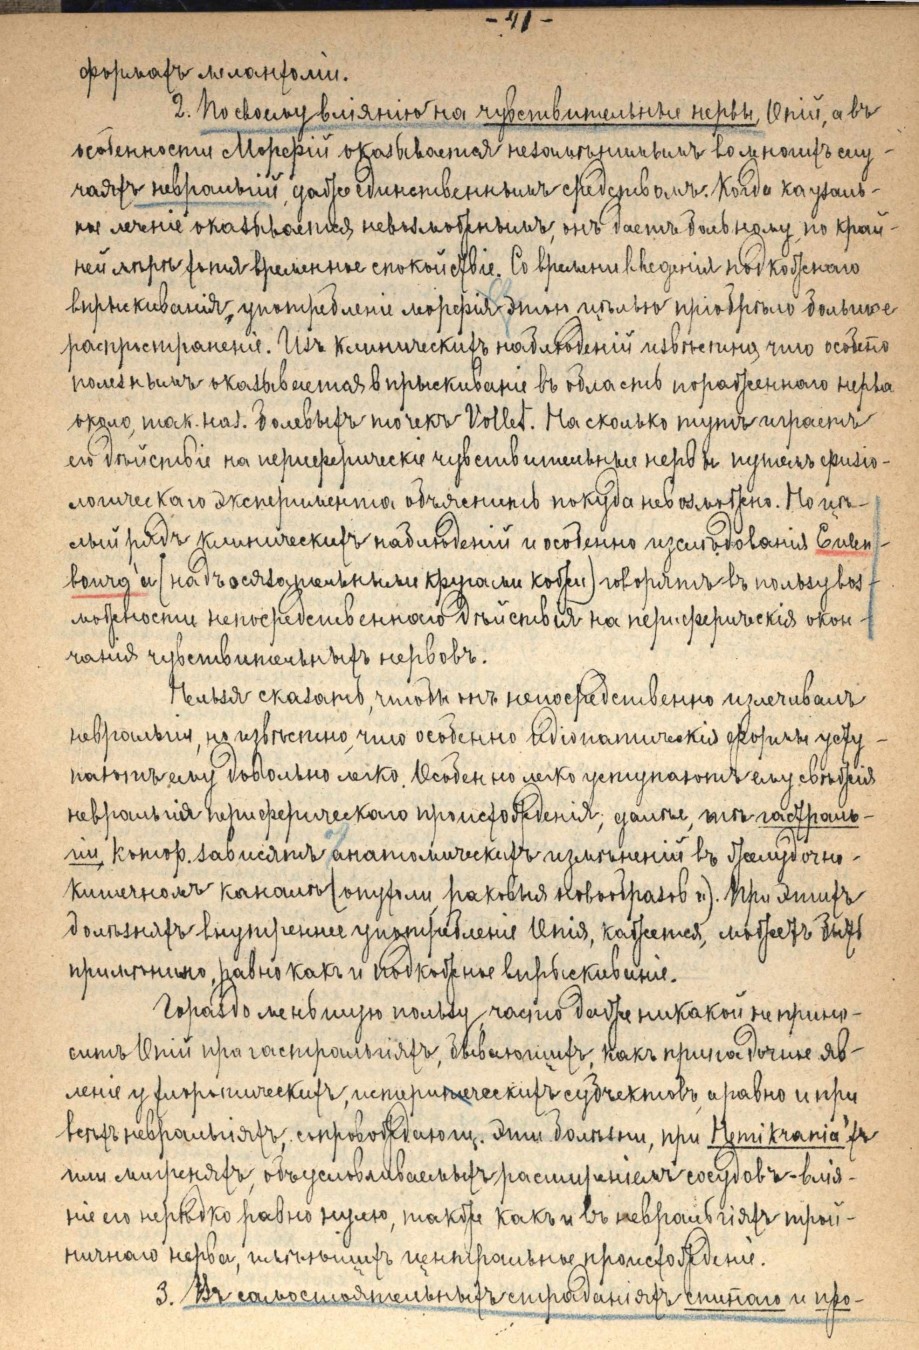 - 41 -
формахъ меланхоліи.
2. По своему вліянію на чувствительные нервы, Опій, а въ
особенности Морфій оказывается незамѣнимымъ во многихъ слу-
чаяхъ невральгій, даже единственнымъ средствомъ. Когда каузаль-
ное леченіе оказывается невозможнымъ, онъ даетъ больному, по край-
ней мѣрѣ хотя временное спокойствіе. Со времени введенія подкожнаго
впрыскиванія, употребленіе морфія этою цѣлью пріобрѣло большое
распространеніе. Изъ клиническихъ наблюденій извѣстно, что особенно
полезнымъ оказывается впрыскиваніе въ область пораженнаго нерва
около, так. наз. болевыхъ точекъ Vollet. На сколько тутъ играетъ
его дѣйствіе на периферическіе чувствительные нервы путемъ физіо-
логическаго эксперимента объяснить покуда невозможно. Но цѣ-
лый рядъ клиническихъ наблюденій и особенно изслѣдованія Eulen-
bourg'a (надъ осязательными кругами кожи) говорятъ въ пользу воз-
можности непосредственнаго дѣйствія на периферическія окон-
чанія чувствительныхъ нервовъ.
Нельзя сказать, чтобы онъ непосредственно излечивалъ
невральгіи, но извѣстно, что особенно идіопатическія формы усту-
паютъ ему довольно легко. Особенно легко уступаютъ ему свѣжія
невральгія периферическаго происхожденія, далѣе, тѣ гастраль-
гіи, котор. зависятъ отъ анатомическихъ измѣненій въ желудочно-
кишечномъ каналѣ (опухоли раковыя новообразов.). При этихъ
болѣзняхъ внутреннее употребленіе Опія, кажется, можетъ быть
примѣнимо, равно какъ и подкожное впрыскиваніе.
Гораздо меньшую пользу, часто даже никакой не прино-
ситъ Опій при гастральгіяхъ, бывающихъ, какъ припадочные яв-
леніе у хлоротическихъ, истерическихъ субъектовъ, а равно и при
всѣхъ невральгіяхъ, сопровождающ. эти болѣзни, при Hemikrania'хъ
или мигреняхъ, обусловливаемыхъ расширеніемъ сосудовъ - влія-
ніе его нерѣдко равно нулю, также какъ и въ невральгіяхъ трой-
ничнаго нерва, имѣющихъ центральное происхожденіе.
3. Въ самостоятельныхъ страданіяхъ спиннаго и про-